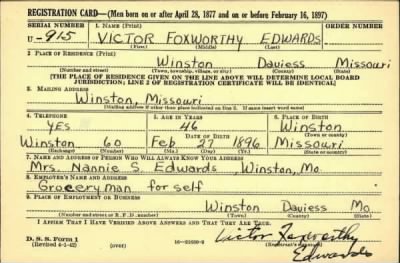 REGISTRATION CARD—(Men born on or after April 28, 1877 and on or before February 16, 1897)
SERIAL NUMBER 1. NAME (Print) ORDER NUMBER
U-915 VICTOR FOXWORTHY EDWARDS
(First) (Middle) (Last)
2. PLACE OF RESIDENCE (Print)
Winston Daviess Missouri
(Number and street) (Town, township, village, or city) (County) (State)
[THE PLACE OF RESIDENCE GIVEN ON THE LINE ABOVE WILL DETERMINE LOCAL BOARD
JURISDICTION; LINE 2 OF REGISTRATION CERTIFICATE WILL BE IDENTICAL]
3. MAILING ADDRESS
Winston, Missouri
[Mailing address if other than place indicated on line 2. If same insert word same]
4. TELEPHONE 5. AGE IN YEARS 6. PLACE OF BIRTH
YES 46 Winston
DATE OF BIRTH (Town or county)
Winston 60 Feb 27 1896 Missouri
(Exchange) (Number) (Mo.) (Day) (Yr.) (State or country)
7. NAME AND ADDRESS OF PERSON WHO WILL ALWAYS KNOW YOUR ADDRESS
Mrs. Nannie S. Edwards, Winston, Mo.
8. EMPLOYER'S NAME AND ADDRESS
Groceryman for self
9. PLACE OF EMPLOYMENT OR BUSINESS
Winston Daviess Mo.
(Number and street or R. F. D. number) (Town) (County) (State)
I AFFIRM THAT I HAVE VERIFIED ABOVE ANSWERS AND THAT THEY ARE TRUE.
D. S. S. Form 1
(Revised 4-1-42) (over)
Victor Foxworthy
(Registrant's signature)
Edwards